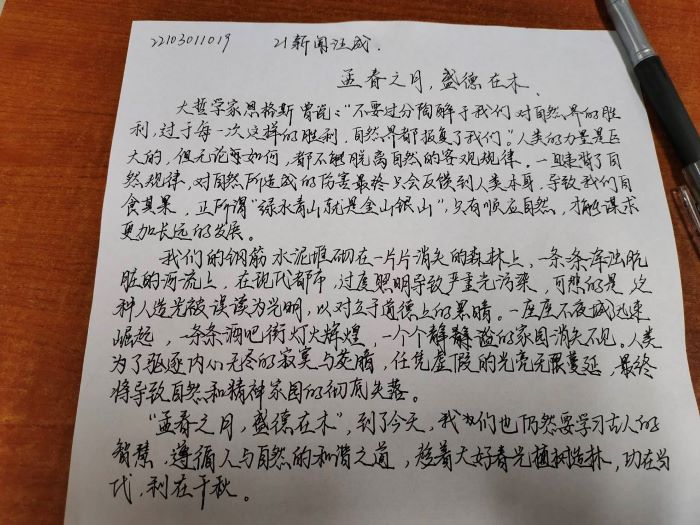 22103011019 21新闻汪威.
孟春之月,盛德在木.
大哲学家恩格斯曾说:“不要过分陶醉于我们对自然界的胜
利,过于每一次这样的胜利,自然界都报复了我们。”人类的力量是巨
大的,但无论如何,都不能脱离自然的客观规律。一旦违背了自
然规律,对自然所造成的伤害最终只会反馈到人类本身,导致我们自
食其果,正所谓“绿水青山就是金山银山”,只有顺应自然,才能谋求
更加长远的发展。
我们的钢筋水泥堆砌在一片片消失的森林上,一条条浑浊肮
脏的河流上,在现代都市,过度照明导致严重光污染,可悲的是,这
种人造光被误读为光明,以对立于道德上的黑暗。一座座不夜城迅速
崛起,一条条酒吧街灯火辉煌,一个个静谧的家园消失不见。人类
为了驱逐内心无尽的寂寞与荒暗,任凭虚假的光亮无限蔓延,最终
将导致自然和精神家园的彻底失落。
“孟春之月,盛德在木”,到了今天,我们也仍然要学习古人的
智慧,遵循人与自然的和谐之道,趁着大好春光植树造林,功在当
代,利在千秋。